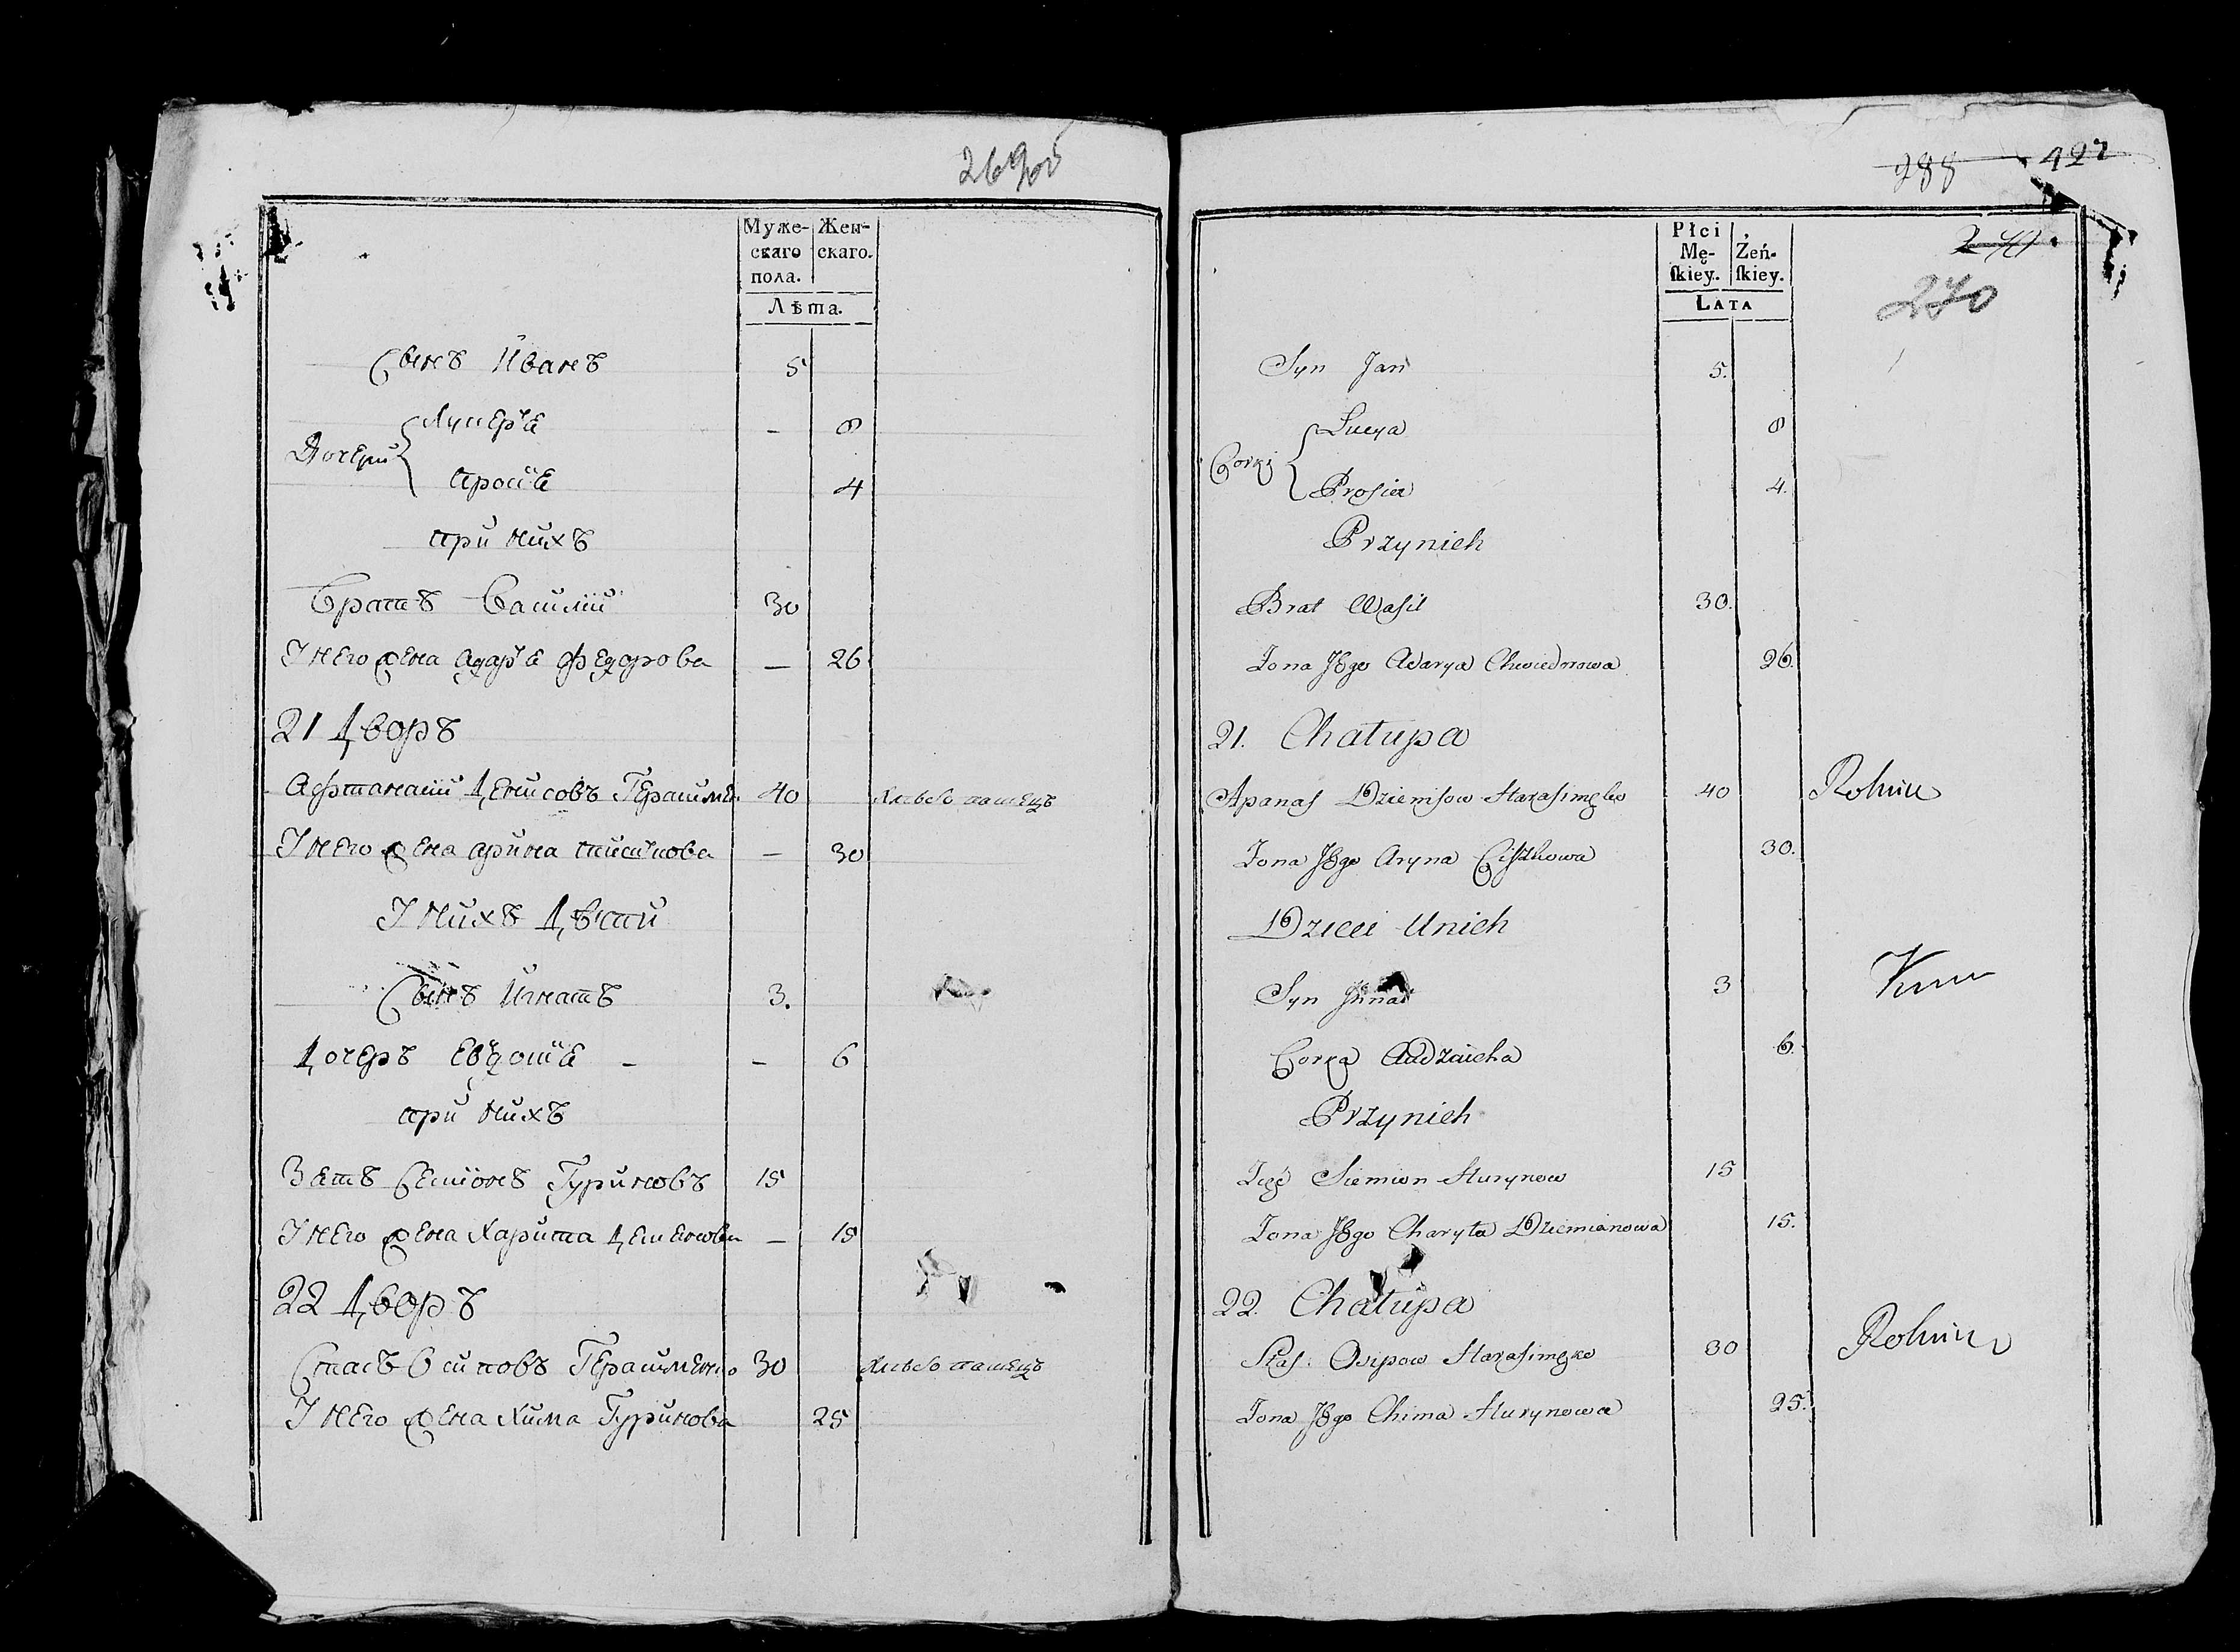 269об
Муже-
скаго
пола.
Жен-
скаго.
Лѣта.
Сынъ Иванъ 5
Дочери
Луцеря - 8
Прося 4
при нихъ
Братъ Василий 30
У него жена Адаря Федорова — 26
21 Дворъ
Афтанаши Денисовъ Герасимен 40 Хлебо пашецъ
У него жена Арина Тишкова — 30
У нихъ Дѣти
Сынъ Игнатъ 3.
Дочеръ Евдошя - - 6
при нихъ
Зять Семионъ Гуриновъ 15
У него жена Харита Деменова — 15
22 Дворъ
Стасъ Осиповъ Герасименко 30 Хлебо пашецъ
У него жена Хима Гуринова 25
288 427
Płci
Mę-
ſkiey.
Żeń-
ſkiey.
LATA
240
270
Syn Jan 5.
Corki
Lucya 8
Prosia 4.
Przynich
Brat Wasil 30.
Żona Jego Adarya Chwiedorowa 26.
21. Chałupa
Apanas Dzienisow Harasimęko 40 Rolnik
Żona Jego Aryna Ciszkowa 30.
Dzieci Unich
Syn 3
Corka Audzaicha 6.
Przynich
Zięć Siemion Hurynow 15
Żona Jego Charyta Dziemianowa 15.
22. Chałupa
Stas: Osipow Harasimęko 30 Rolnik
Żona Jego Chima Hurynowa 25.